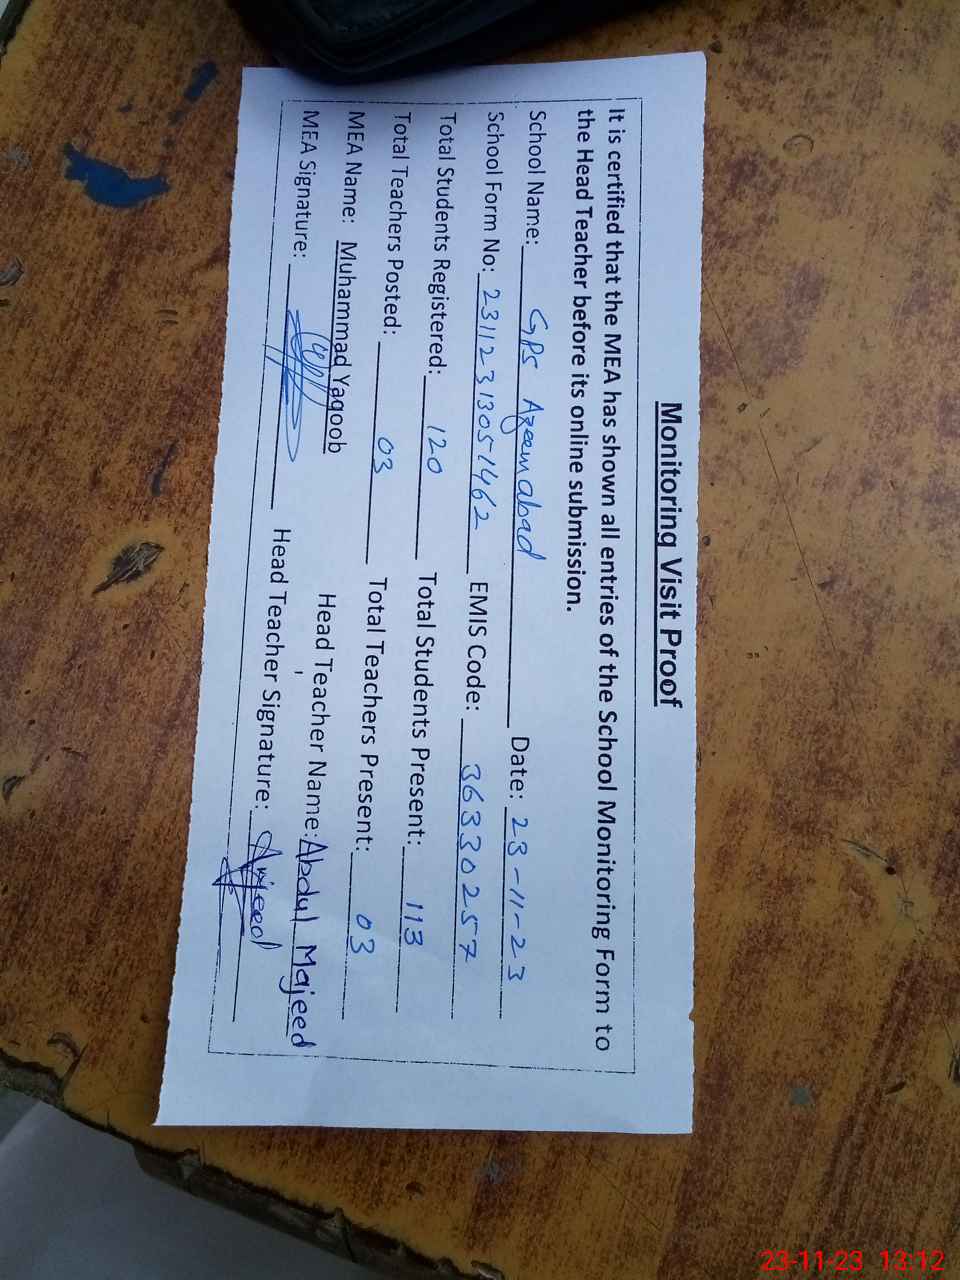 Monitoring Visit Proof
It is certified that the MEA has shown all entries of the School Monitoring Form to
the Head Teacher before its online submission.
School Name: GPS Azeemabad Date: 23-11-23
School Form No: 23112313051462 EMIS Code: 36330257
Total Students Registered: 120 Total Students Present: 113
Total Teachers Posted: 03 Total Teachers Present: 03
MEA Name: Muhammad Yaqoob Head Teacher Name: Abdul Majeed
MEA Signature: Head Teacher Signature: Amjeed
23-11-23 13:12